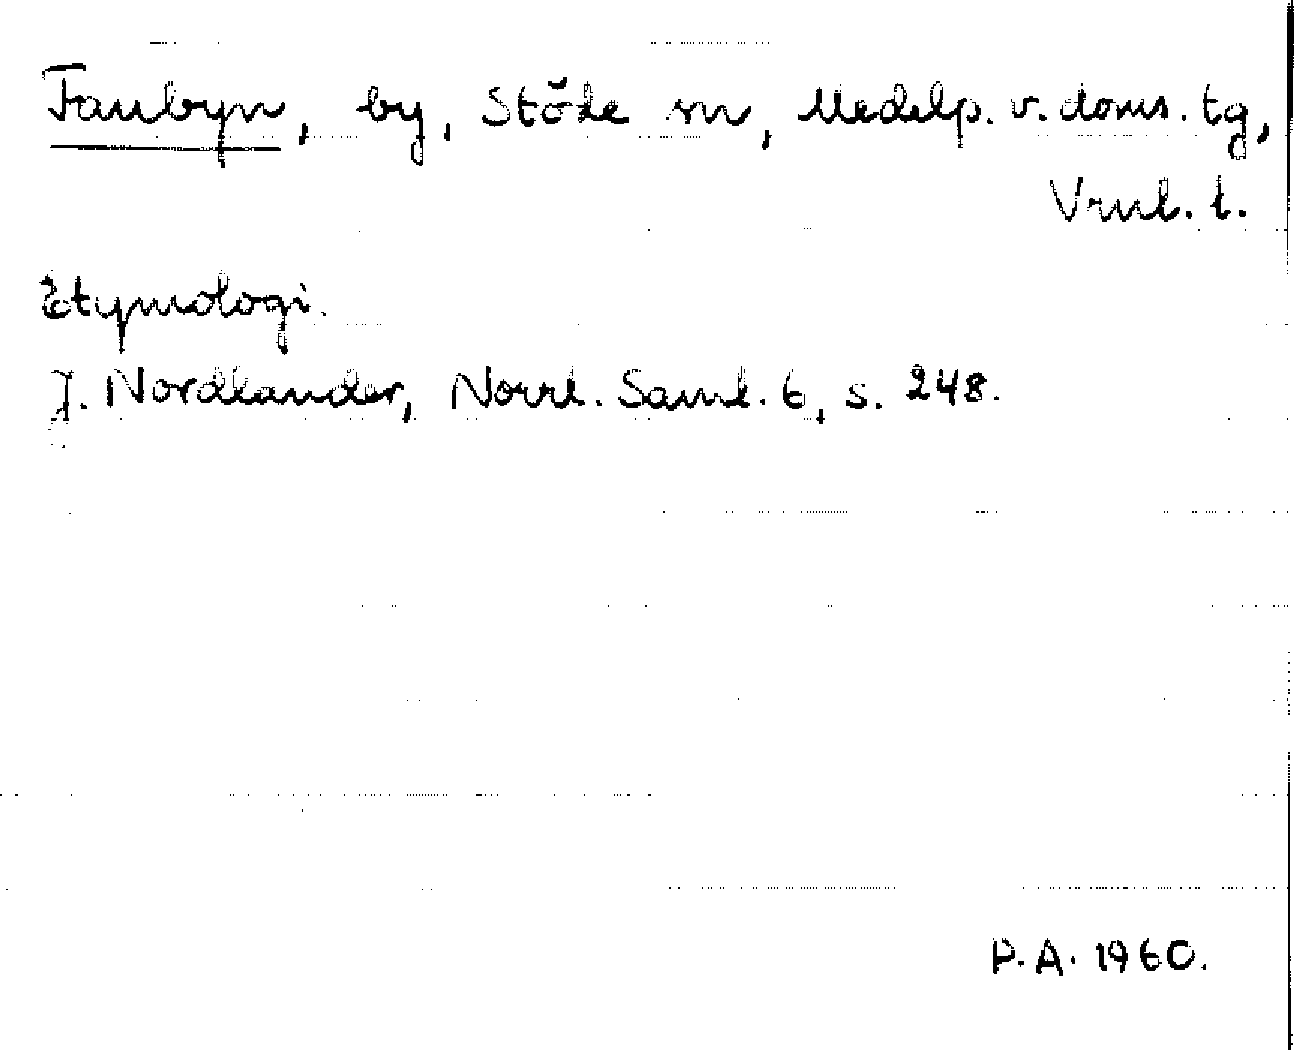 Fanbyn, by, Stöde sn, Medelp. v. doms. tg,
Vrnl. l.
Etymologi.
J. Nordlander, Norrl. Saml. 6, s. 248.
P.A. 1960.